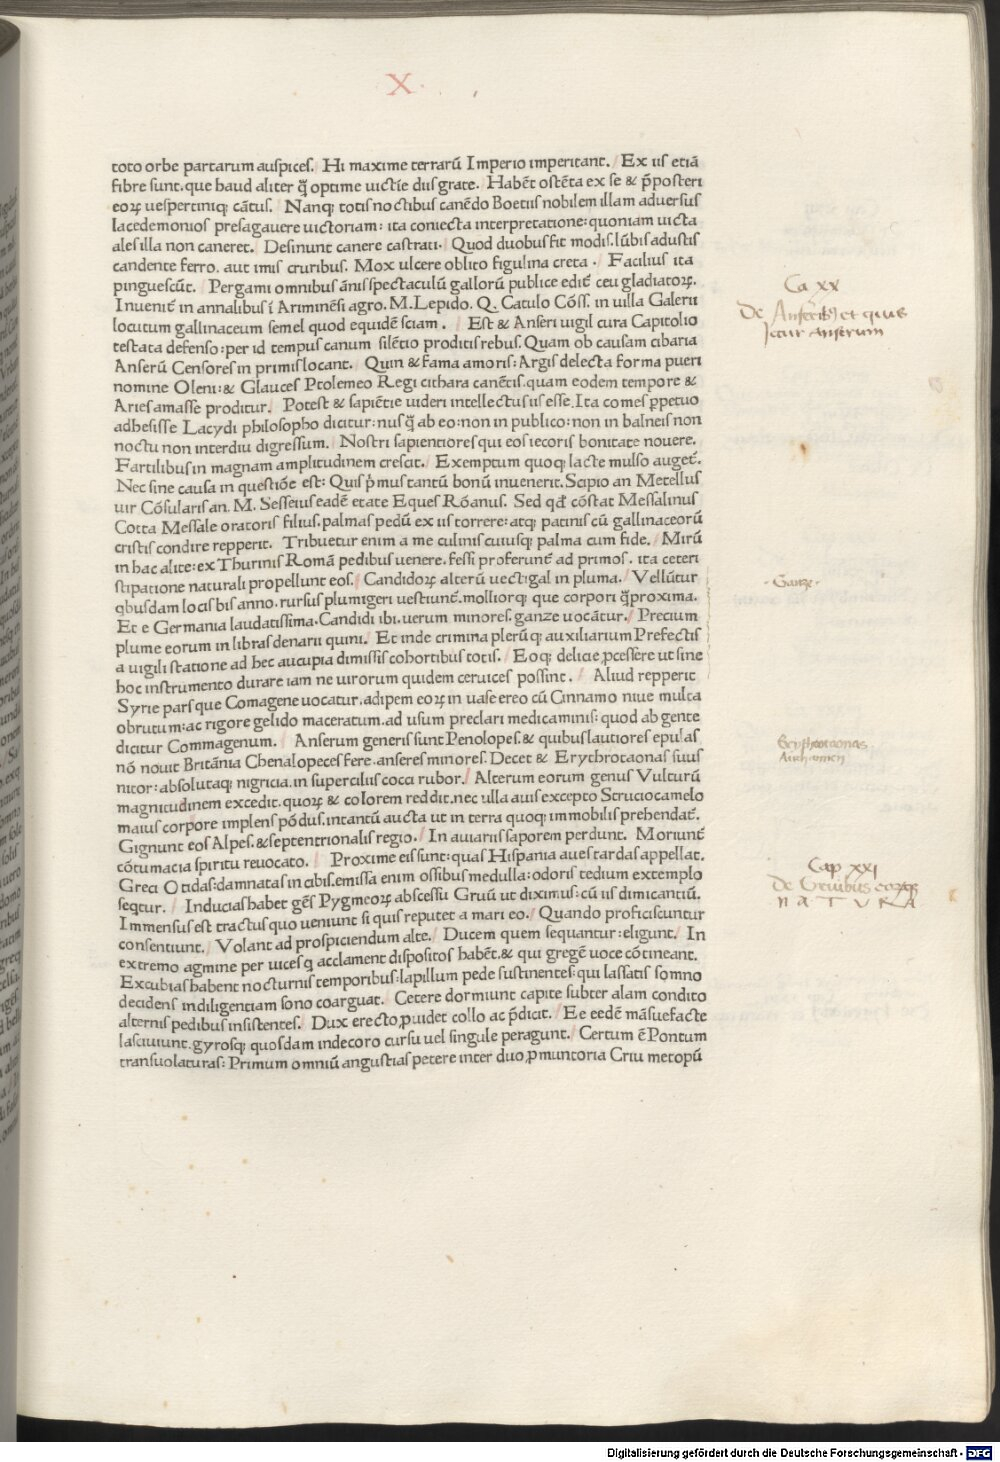 X
toto orbe partarum auspices. Hi maxime terrarū Imperio imperitant. Ex iis etiā
fibre sunt. que haud aliter q̄ optime uictīe diis grate. Habēt ostēta ex se & p̄posteri
eoꝝ uespertiniqꝫ cātus. Nanqꝫ totis noctibus canēdo Boetiis nobilem illam aduersus
lacedemonios presagauere uictoriam: ita coniecta interpretatione: quoniam uicta
ales illa non caneret. Desinunt canere castrati. Quod duobus fit modis. lūbis adustis
candente ferro. aut imis cruribus. Mox ulcere oblito figulina creta. Facilius ita
pinguescūt. Pergami omnibus ānis spectaculū gallorū publice editꝰ ceu gladiatoꝝ.
Inuenitꝰ in annalibus ī Ariminēsi agro. M. Lepido. Q. Catulo Cōss. in uilla Galerii
locutum gallinaceum semel quod equidē sciam. Est & Anseri uigil cura Capitolio
testata defenso: per id tempus canum silētio proditis rebus. Quam ob causam cibaria
Anserū Censores in primis locant. Quin & fama amoris: Argis delecta forma pueri
nomine Oleni: & Glauces Ptolemeo Regi cithara canētis. quam eodem tempore &
Aries amasse proditur. Potest & sapiētie uideri intellectus iis esse. Ita comes ꝑpetuo
adhesisse Lacydi philosopho dicitur: nusq̄ ab eo: non in publico: non in balneis non
noctu non interdiu digressum. Nostri sapientiores qui eos iecoris bonitate nouere.
Fartilibus in magnam amplitudinem crescit. Exemptum quoqꝫ lacte mulso augetꝰ.
Nec sine causa in questiōe est: Quis p̄mus tantū bonū inuenerit. Scipio an Metellus
uir Cōsularis an. M. Sesseius eadē etate Eques Rōanus. Sed qđ cōstat Messalinus
Cotta Messale oratoris filius. palmas pedū ex iis torrere: atqꝫ patinis cū gallinaceorū
cristis condire repperit. Tribuetur enim a me culinis cuiusqꝫ palma cum fide. Mirū
in hac alite: ex Thurinis Romā pedibus uenere. fessi proferuntꝰ ad primos. ita ceteri
stipatione naturali propellunt eos. Candidoꝝ alterū uectigal in pluma. Vellūtur
qbusdam locis bis anno. rursus plumigeri uestiuntꝰ. molliorqꝫ que corpori q̄proxima.
Et e Germania laudatissima. Candidi ibi. uerum minores. ganze uocātur. Precium
plume eorum in libras denarii quini. Et inde crimina plerūqꝫ auxiliarium Prefectis
a uigili statione ad hec aucupia dimissis cohortibus totis. Eoqꝫ delicie ꝓcessere ut sine
hoc instrumento durare iam ne uirorum quidem ceruices possint. Aliud repperit
Syrie pars que Comagene uocatur. adipem eoꝝ in uase ereo cū Cinnamo niue multa
obrutum: ac rigore gelido maceratum. ad usum preclari medicaminis: quod ab gente
dicitur Commagenum. Anserum generis sunt Penolopes. & quibus lautiores epulas
nō nouit Britānia Chenalopeces fere. anseres minores. Decet & Erythrotaonas suus
nitor: absolutaqꝫ nigricia. in superciliis cocci rubor. Alterum eorum genus Vulturū
magnitudinem excedit. quoꝝ & colorem reddit. nec ulla auis excepto Strutiocamelo
maius corpore implens pōdus. intantū aucta ut in terra quoqꝫ immobilis prehendatꝰ.
Gignunt eos Alpes. & septentrionalis regio. In auiariis saporem perdunt. Moriuntꝰ
cōtumacia spiritu reuocato. Proxime eis sunt: quas Hispania aues tardas appellat.
Greci Otidas: damnatas in cibis. emissa enim ossibus medulla: odoris tedium extemplo
seqtur. Inducias habet gēs Pygmeoꝝ abscessu Gruū ut diximus: cū iis dimicantiū.
Immensus est tractus quo ueniunt si quis reputet a mari eo. Quando proficiscuntur
consentiunt. Volant ad prospiciendum alte. Ducem quem sequantur: eligunt. In
extremo agmine per uices q acclament dispositos habēt. & qui gregē uoce cōtineant.
Excubias habent nocturnis temporibus: lapillum pede sustinentes: qui lassatis somno
decidens indiligentiam sono coarguat. Cetere dormiunt capite subter alam condito
alternis pedibus insistentes. Dux erecto ꝓuidet collo ac p̄dicit. Ee eedē māsuefacte
lasciuiunt. gyrosqꝫ quosdam indecoro cursu uel singule peragunt. Certum ē Pontum
transuolaturas: Primum omniū angustias petere inter duo ꝓmuntoria Criu metopū
Ca xx
De Anseribꝰ et quis
Iecur anserum
Ganze
Erythrotaonas
Cap xxi
de Gruibus eoꝝqꝫ
NATURA
Digitalisierung gefördert durch die Deutsche Forschungsgemeinschaft - DFG